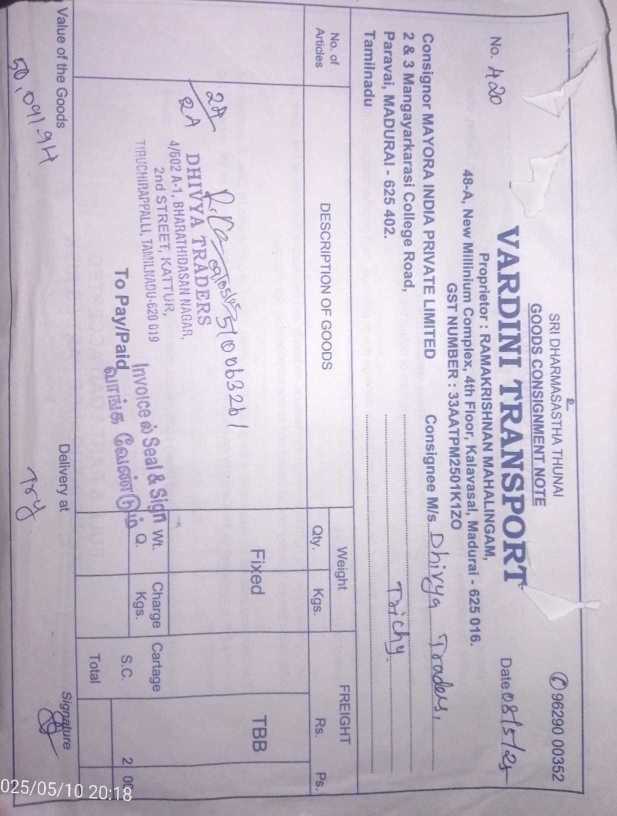 உ
SRI DHARMASASTHA THUNAI
GOODS CONSIGNMENT NOTE
✆ 96290 00352
VARDINI TRANSPORT
No. A20
Date 08/5/25
Proprietor : RAMAKRISHNAN MAHALINGAM,
48-A, New Millinium Complex, 4th Floor, Kalavasal, Madurai - 625 016.
GST NUMBER : 33AATPM2501K1ZO
Consignor MAYORA INDIA PRIVATE LIMITED
2 & 3 Mangayarkarasi College Road,
Paravai, MADURAI - 625 402.
Tamilnadu
Consignee M/s Dhivya Traders,
Trichy
No. of Articles
DESCRIPTION OF GOODS
Weight
Qty. Kgs.
FREIGHT
Rs. Ps.
510063261
Fixed
TBB
DHIVYA TRADERS
4/602 A-1, BHARATHIDASAN NAGAR,
2nd STREET, KATTUR,
TIRUCHIRAPPALLI, TAMILNADU-620 019
Invoice ல் Seal & Sign
வாங்க வேண்டும்
To Pay/Paid
Wt. Q.
Charge Kgs.
Cartage
S.C.
2 00
Total
Value of the Goods
Delivery at
Try
Signature
2025/05/10 20:18